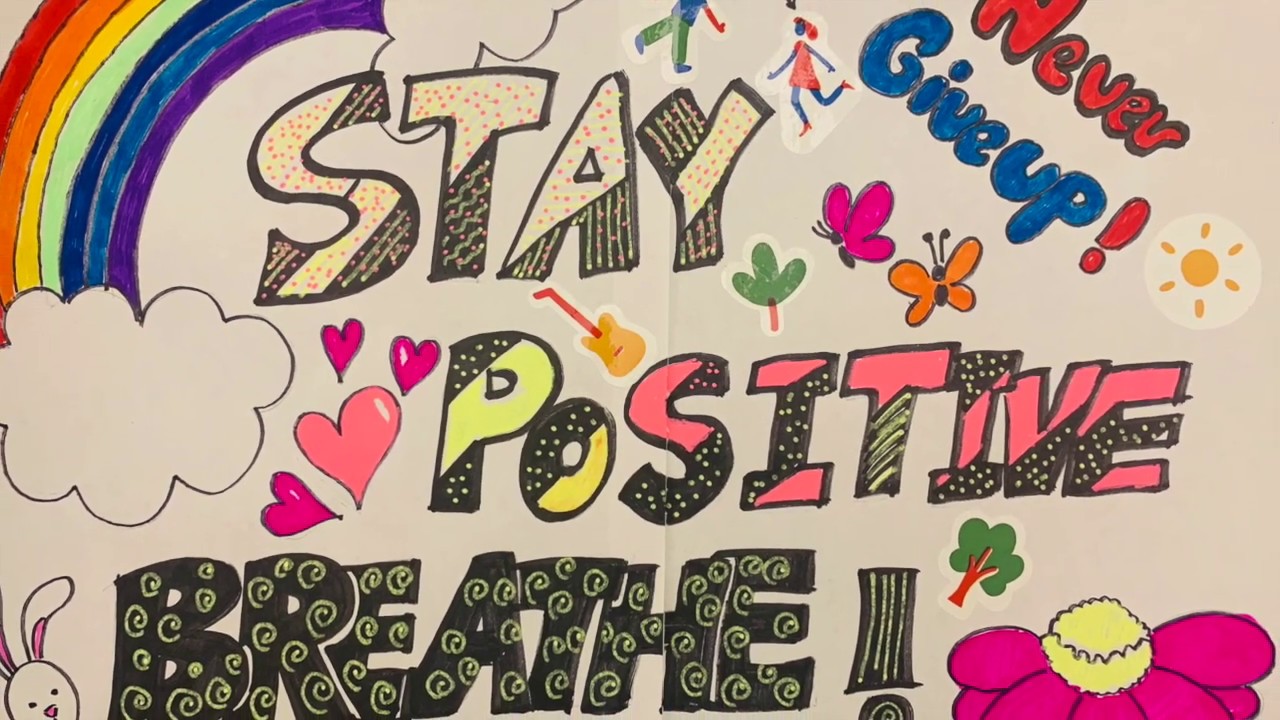 Never
Give up!
STAY
POSITIVE
BREATHE!